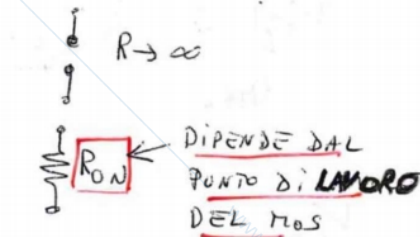 R → ∞
RON
DIPENDE DAL
PUNTO DI LAVORO
DEL MOS